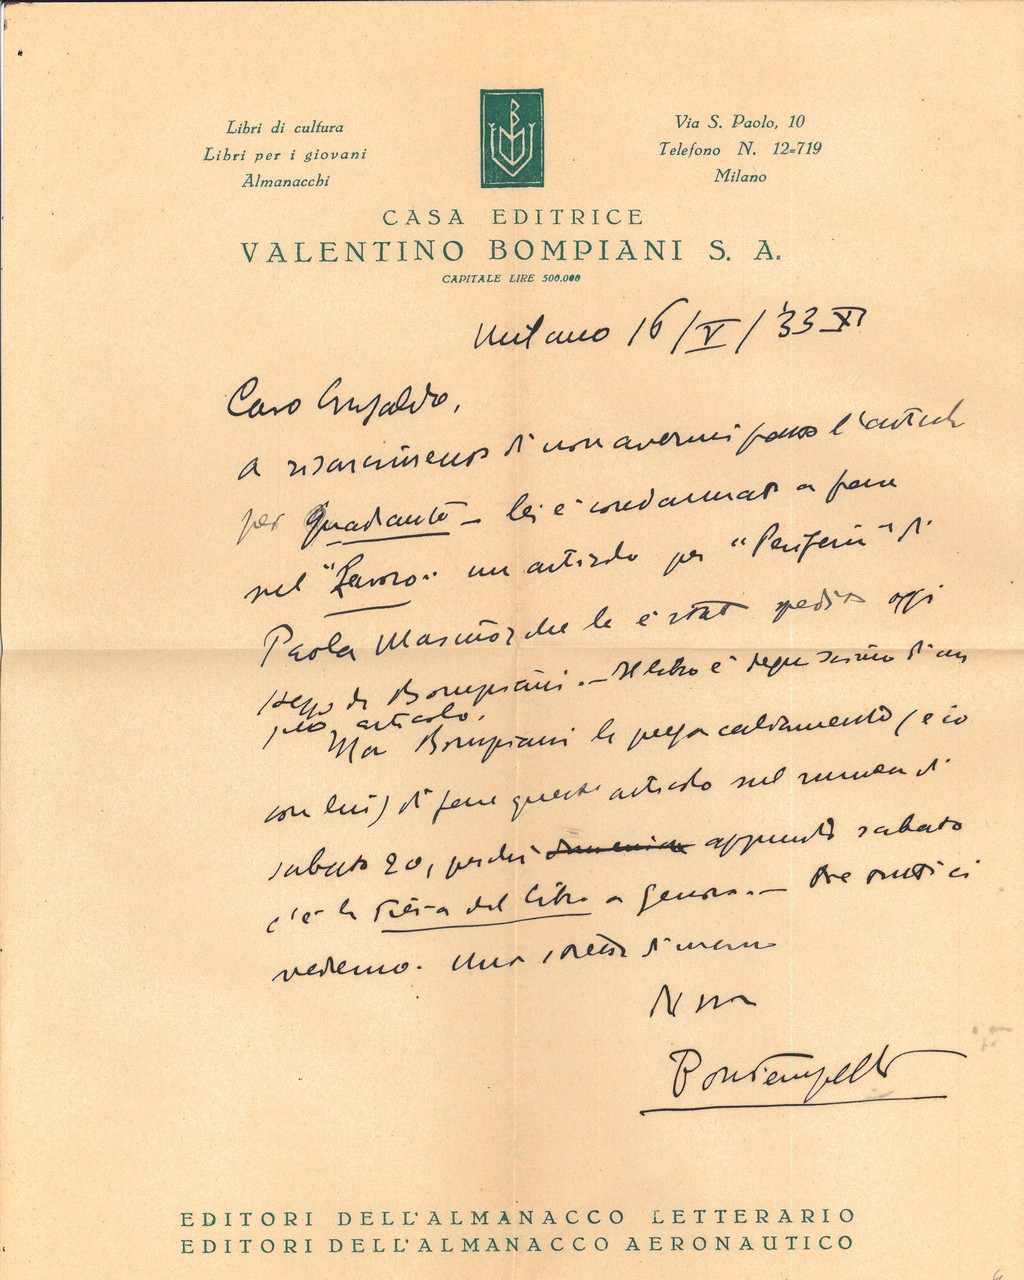 Libri di cultura
Libri per i giovani
Almanacchi
Via S. Paolo, 10
Telefono N. 12=719
Milano
CASA EDITRICE
VALENTINO BOMPIANI S. A.
CAPITALE LIRE 500.000
Milano 16/V/'33 XI
Caro Grisaldo,
A risarcimento di non avermi fatto l'articolo
per Quadrante – lei è condannato a fare
sul "Lavoro" un articolo per "Periferia" di
Paola Masino, che le è stato spedito oggi
da Bompiani. – Il libro è degnissimo d'un
suo articolo.
Ma Bompiani la prega caldamente (e io
con lui) di fare questo articolo sul numero di
sabato 20, perché domenica appunto sabato
c'è la Fiera del libro a Genova. –
vedremo. Una stretta di mano
Bontempelli
EDITORI DELL'ALMANACCO LETTERARIO
EDITORI DELL'ALMANACCO AERONAUTICO